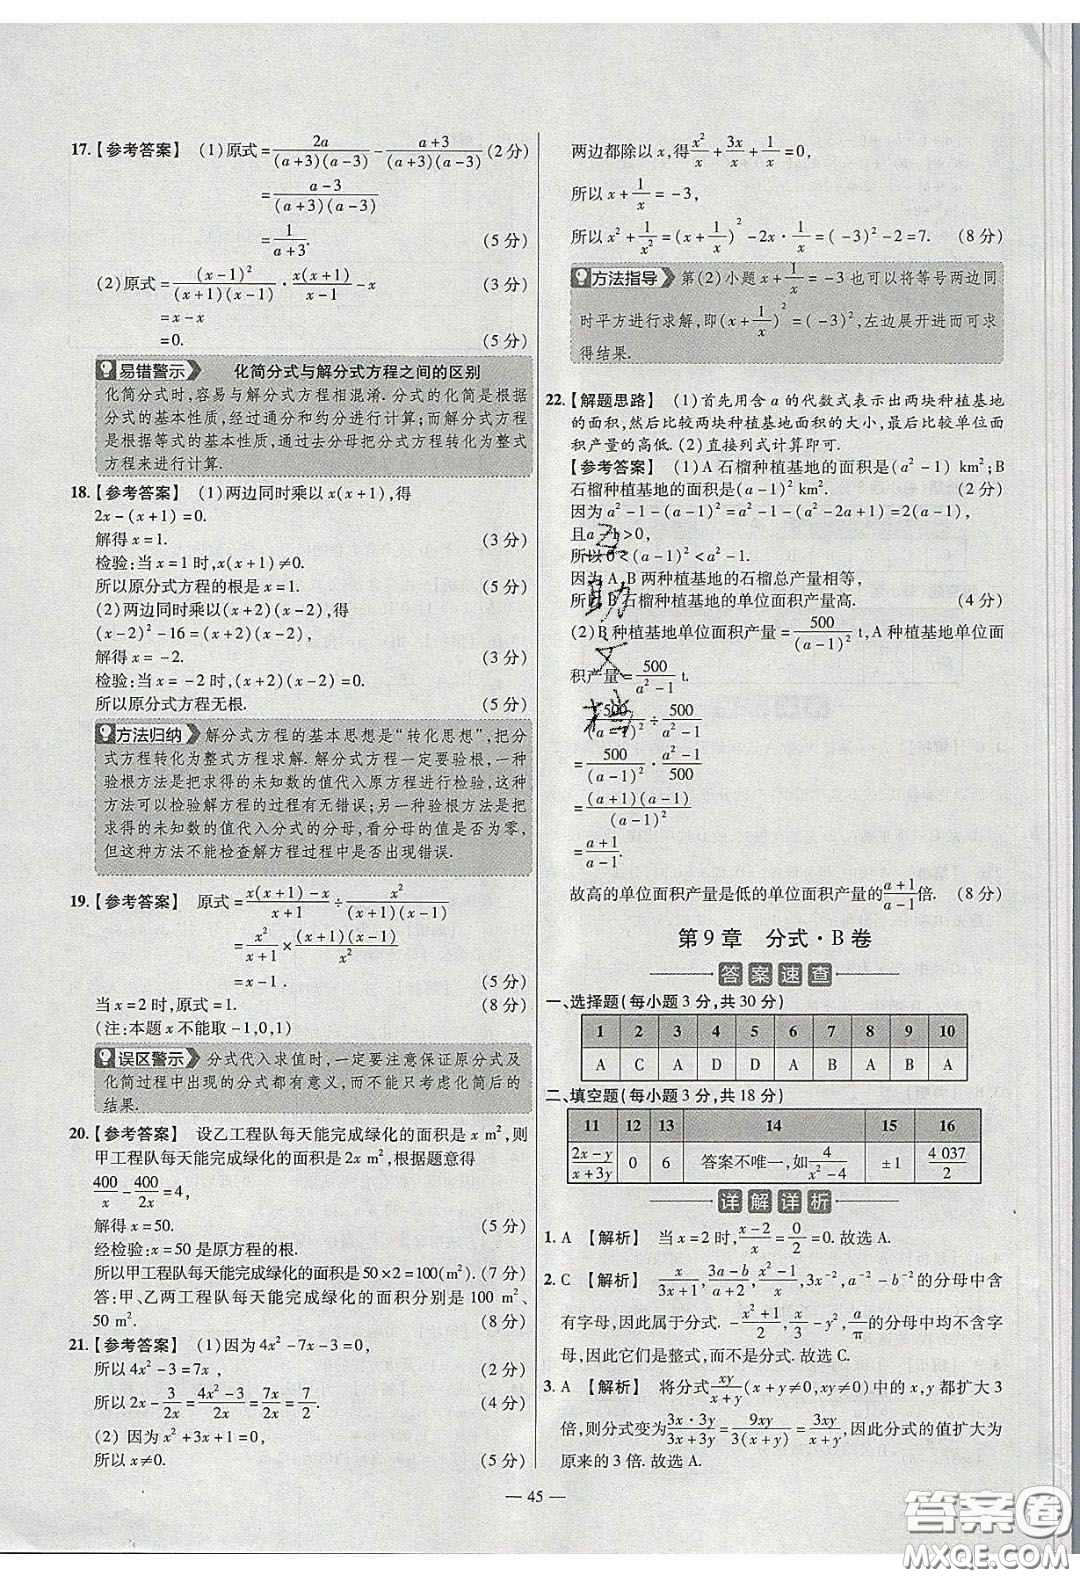 17.【参考答案】 (1)原式=2a/((a+3)(a-3))-(a+3)/((a+3)(a-3))(2分)
=(a-3)/((a+3)(a-3))
=1/(a+3). (5分)
(2)原式=(x-1)²/((x+1)(x-1))·x(x+1)/(x-1)-x (3分)
=x-x
=0. (5分)
易错警示 化简分式与解分式方程之间的区别
化简分式时,容易与解分式方程相混淆.分式的化简是根据
分式的基本性质,经过通分和约分进行计算;而解分式方程
是根据等式的基本性质,通过去分母把分式方程转化为整式
方程来进行计算.
18.【参考答案】 (1)两边同时乘以x(x+1),得
2x-(x+1)=0.
解得x=1. (3分)
检验:当x=1时,x(x+1)≠0.
所以原分式方程的根是x=1. (5分)
(2)两边同时乘以(x+2)(x-2),得
(x-2)²-16=(x+2)(x-2),
解得x=-2. (3分)
检验:当x=-2时,(x+2)(x-2)=0.
所以原分式方程无根. (5分)
方法归纳 解分式方程的基本思想是“转化思想”,把分
式方程转化为整式方程求解.解分式方程一定要验根,一种
验根方法是把求得的未知数的值代入原方程进行检验,这种
方法可以检验解方程的过程有无错误;另一种验根方法是把
求得的未知数的值代入分式的分母,看分母的值是否为零,
但这种方法不能检查解方程过程中是否出现错误.
19.【参考答案】 原式=(x(x+1)-x)/(x+1)÷x²/((x+1)(x-1))
=x²/(x+1)×(x+1)(x-1)/x²
=x-1. (5分)
当x=2时,原式=1. (8分)
(注:本题x不能取-1,0,1)
误区警示 分式代入求值时,一定要注意保证原分式及
化简过程中出现的分式都有意义,而不能只考虑化简后的
结果.
20.【参考答案】 设乙工程队每天能完成绿化的面积是x m²,则
甲工程队每天能完成绿化的面积是2x m²,根据题意得
400/x-400/2x=4,
解得x=50. (5分)
经检验:x=50是原方程的根.
所以甲工程队每天能完成绿化的面积是50×2=100(m²). (7分)
答:甲、乙两工程队每天能完成绿化的面积分别是100 m²、
50 m². (8分)
21.【参考答案】 (1)因为4x²-7x-3=0,
所以4x²-3=7x, (2分)
所以2x-3/2x=(4x²-3)/2x=7x/2x=7/2. (4分)
(2)因为x²+3x+1=0,
所以x≠0. (5分)
两边都除以x,得x²/x+3x/x+1/x=0,
所以x+1/x=-3,
所以x²+1/x²=(x+1/x)²-2x·1/x=(-3)²-2=7. (8分)
方法指导 第(2)小题x+1/x=-3也可以将等号两边同
时平方进行求解,即(x+1/x)²=(-3)²,左边展开进而可求
得结果.
22.【解题思路】 (1)首先用含a的代数式表示出两块种植基地
的面积,然后比较两块种植基地面积的大小,最后比较单位面
积产量的高低.(2)直接列式计算即可.
【参考答案】 (1)A石榴种植基地的面积是(a²-1) km²;B
石榴种植基地的面积是(a-1)² km². (2分)
因为a²-1-(a-1)²=a²-1-(a²-2a+1)=2(a-1),
且a-1>0,
所以0<(a-1)²<a²-1.
因为A,B两种植基地的石榴总产量相等,
所以B石榴种植基地的单位面积产量高. (4分)
(2)B种植基地单位面积产量=500/(a-1)² t,A种植基地单位面
积产量=500/(a²-1) t.
500/(a-1)²÷500/(a²-1)
=500/(a-1)²·(a²-1)/500
=(a+1)(a-1)/(a-1)²
=(a+1)/(a-1).
故高的单位面积产量是低的单位面积产量的(a+1)/(a-1)倍. (8分)
第9章 分式·B卷
答案速查
一、选择题(每小题3分,共30分)
1 2 3 4 5 6 7 8 9 10
A C A D D A B A B A
二、填空题(每小题3分,共18分)
11 12 13 14 15 16
(2x-y)/(x+3y) 0 6 答案不唯一,如4/(x²-4) ±1 4 037/2
详解详析
1. A 【解析】 当x=2时,(x-2)/x=0/2=0.故选A.
2. C 【解析】 x/(3x+1),(3a-b)/(a+2),(x²-1)/x,3x⁻²,a⁻²-b⁻²的分母中含
有字母,因此属于分式.-(x²+1)/2,x/3-y²,a/π的分母中均不含字
母,因此它们是整式,而不是分式.故选C.
3. A 【解析】 将分式xy/(x+y)(x+y≠0,xy≠0)中的x,y都扩大3
倍,则分式变为3x·3y/(3x+3y)=9xy/(3(x+y))=3xy/(x+y),因此分式的值扩大为
原来的3倍.故选A.
— 45 —
答案圈
MXQE.COM